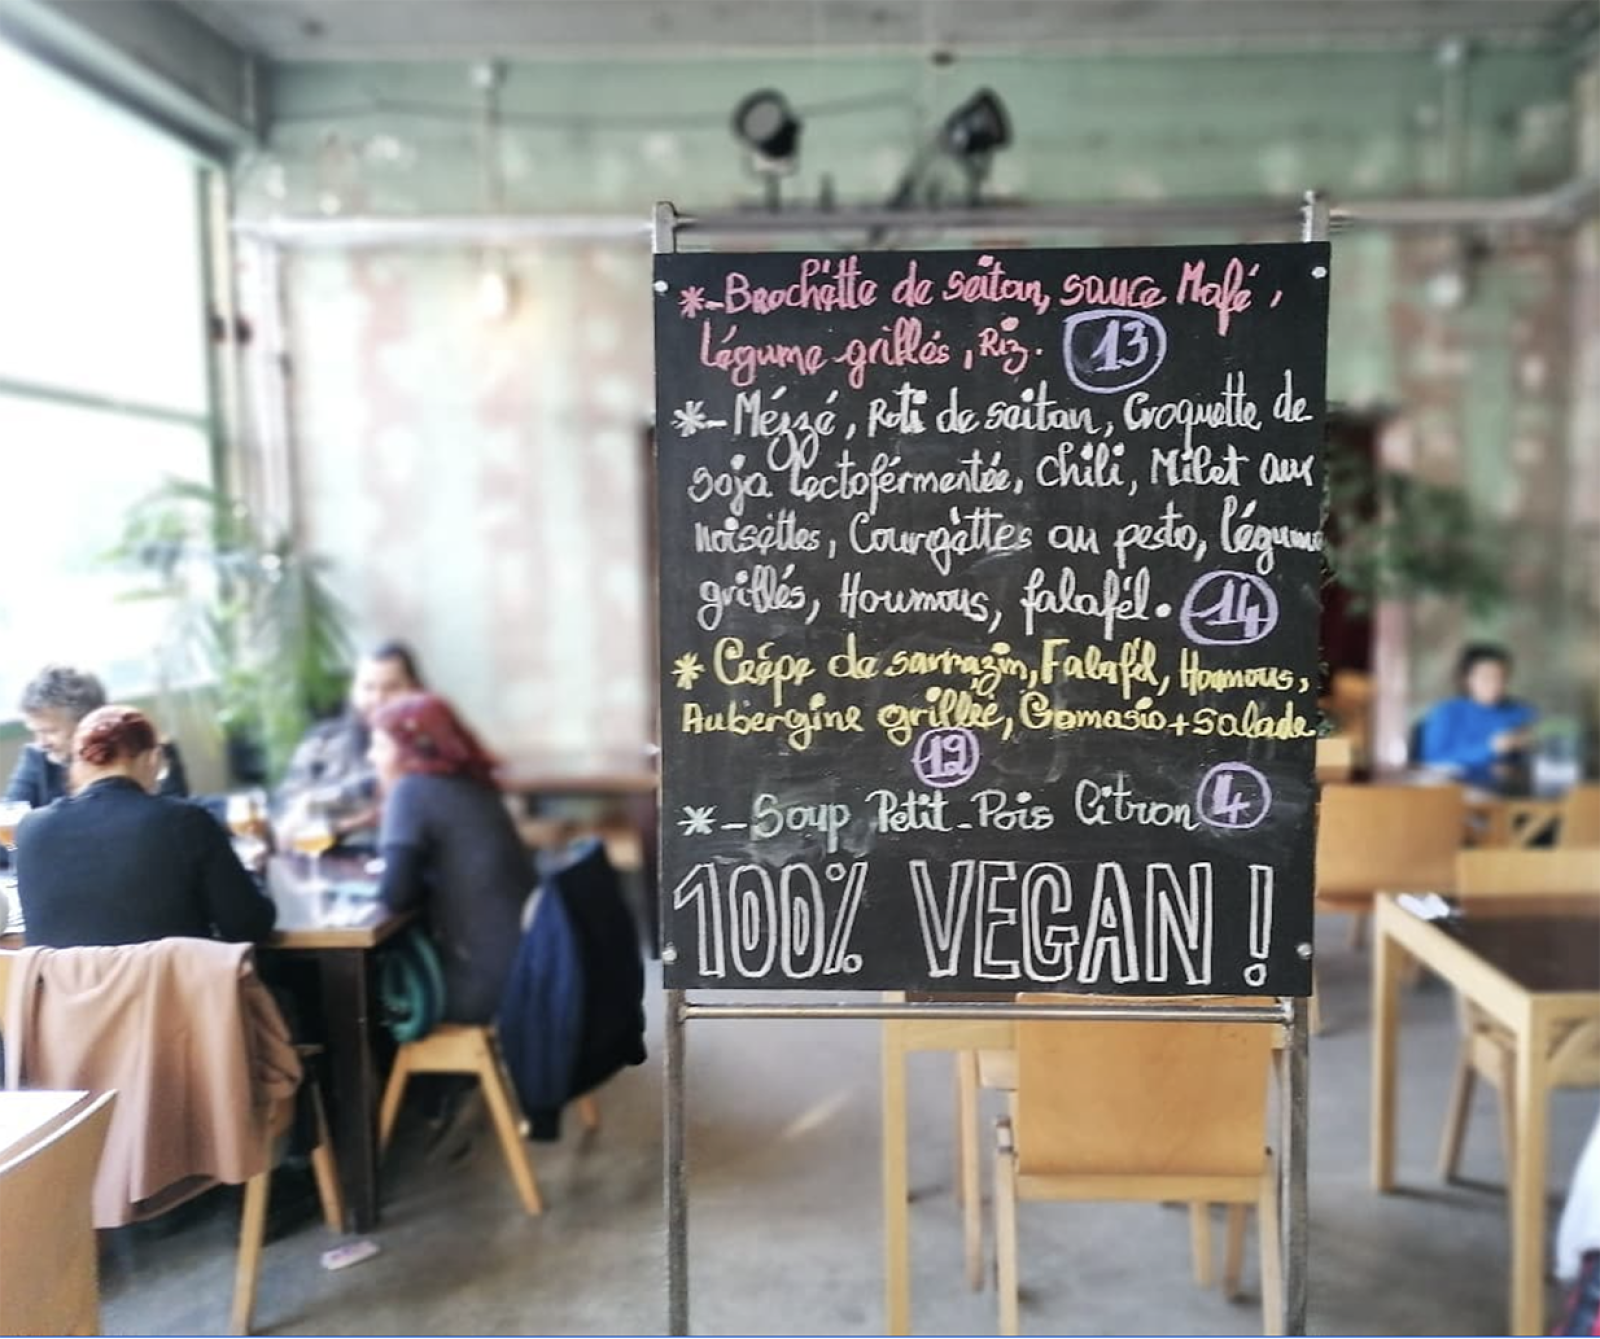 *-Brochette de seitan, sauce Mafé,
Légume grillés, Riz. 13
*-Mézzé, Roti de seitan, Croquette de
soja lactofermentée, chili, Milet aux
noisettes, Courgèttes au pesto, légume
grillés, Houmous, falafél. 14
* Crêpe de sarrazin, Falafél, Houmous,
Aubergine grillée, Gomasio + salade
12
*-Soup Petit-Pois Citron 4
100% VEGAN !